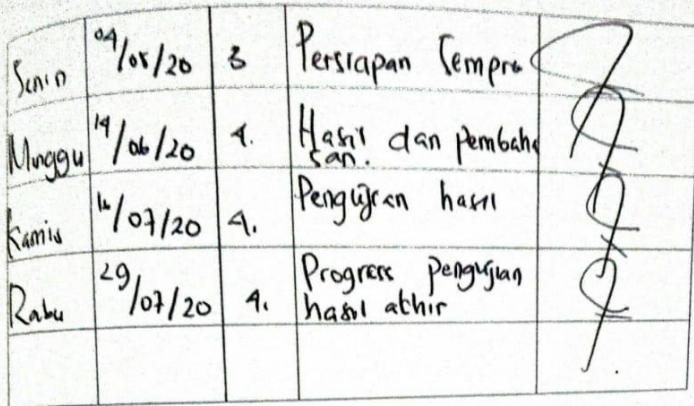 Senin 04/05/20 3 Persiapan Sempro
Minggu 14/06/20 4. Hasil dan pembaha
san.
Kamis 16/07/20 4. Pengujian hasil
Rabu 29/07/20 4. Progress pengujian
hasil akhir